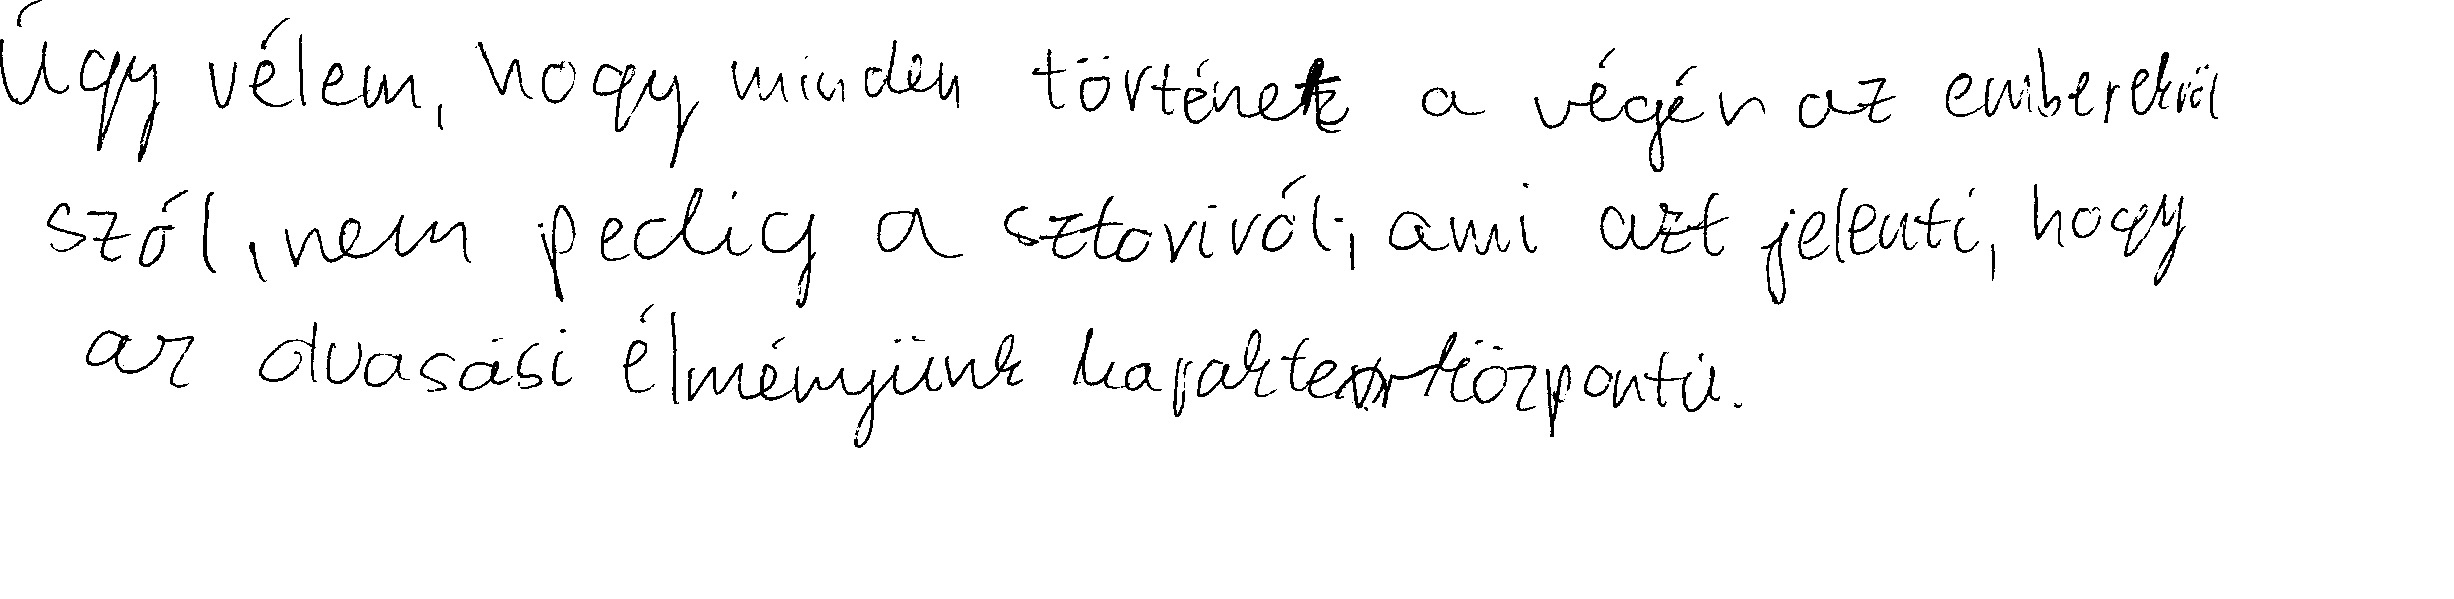 Úgy vélem, hogy minden történet a végén az emberekről
szól, nem pedig a sztoriról, ami azt jelenti, hogy
az olvasási élményünk karakterközpontú.